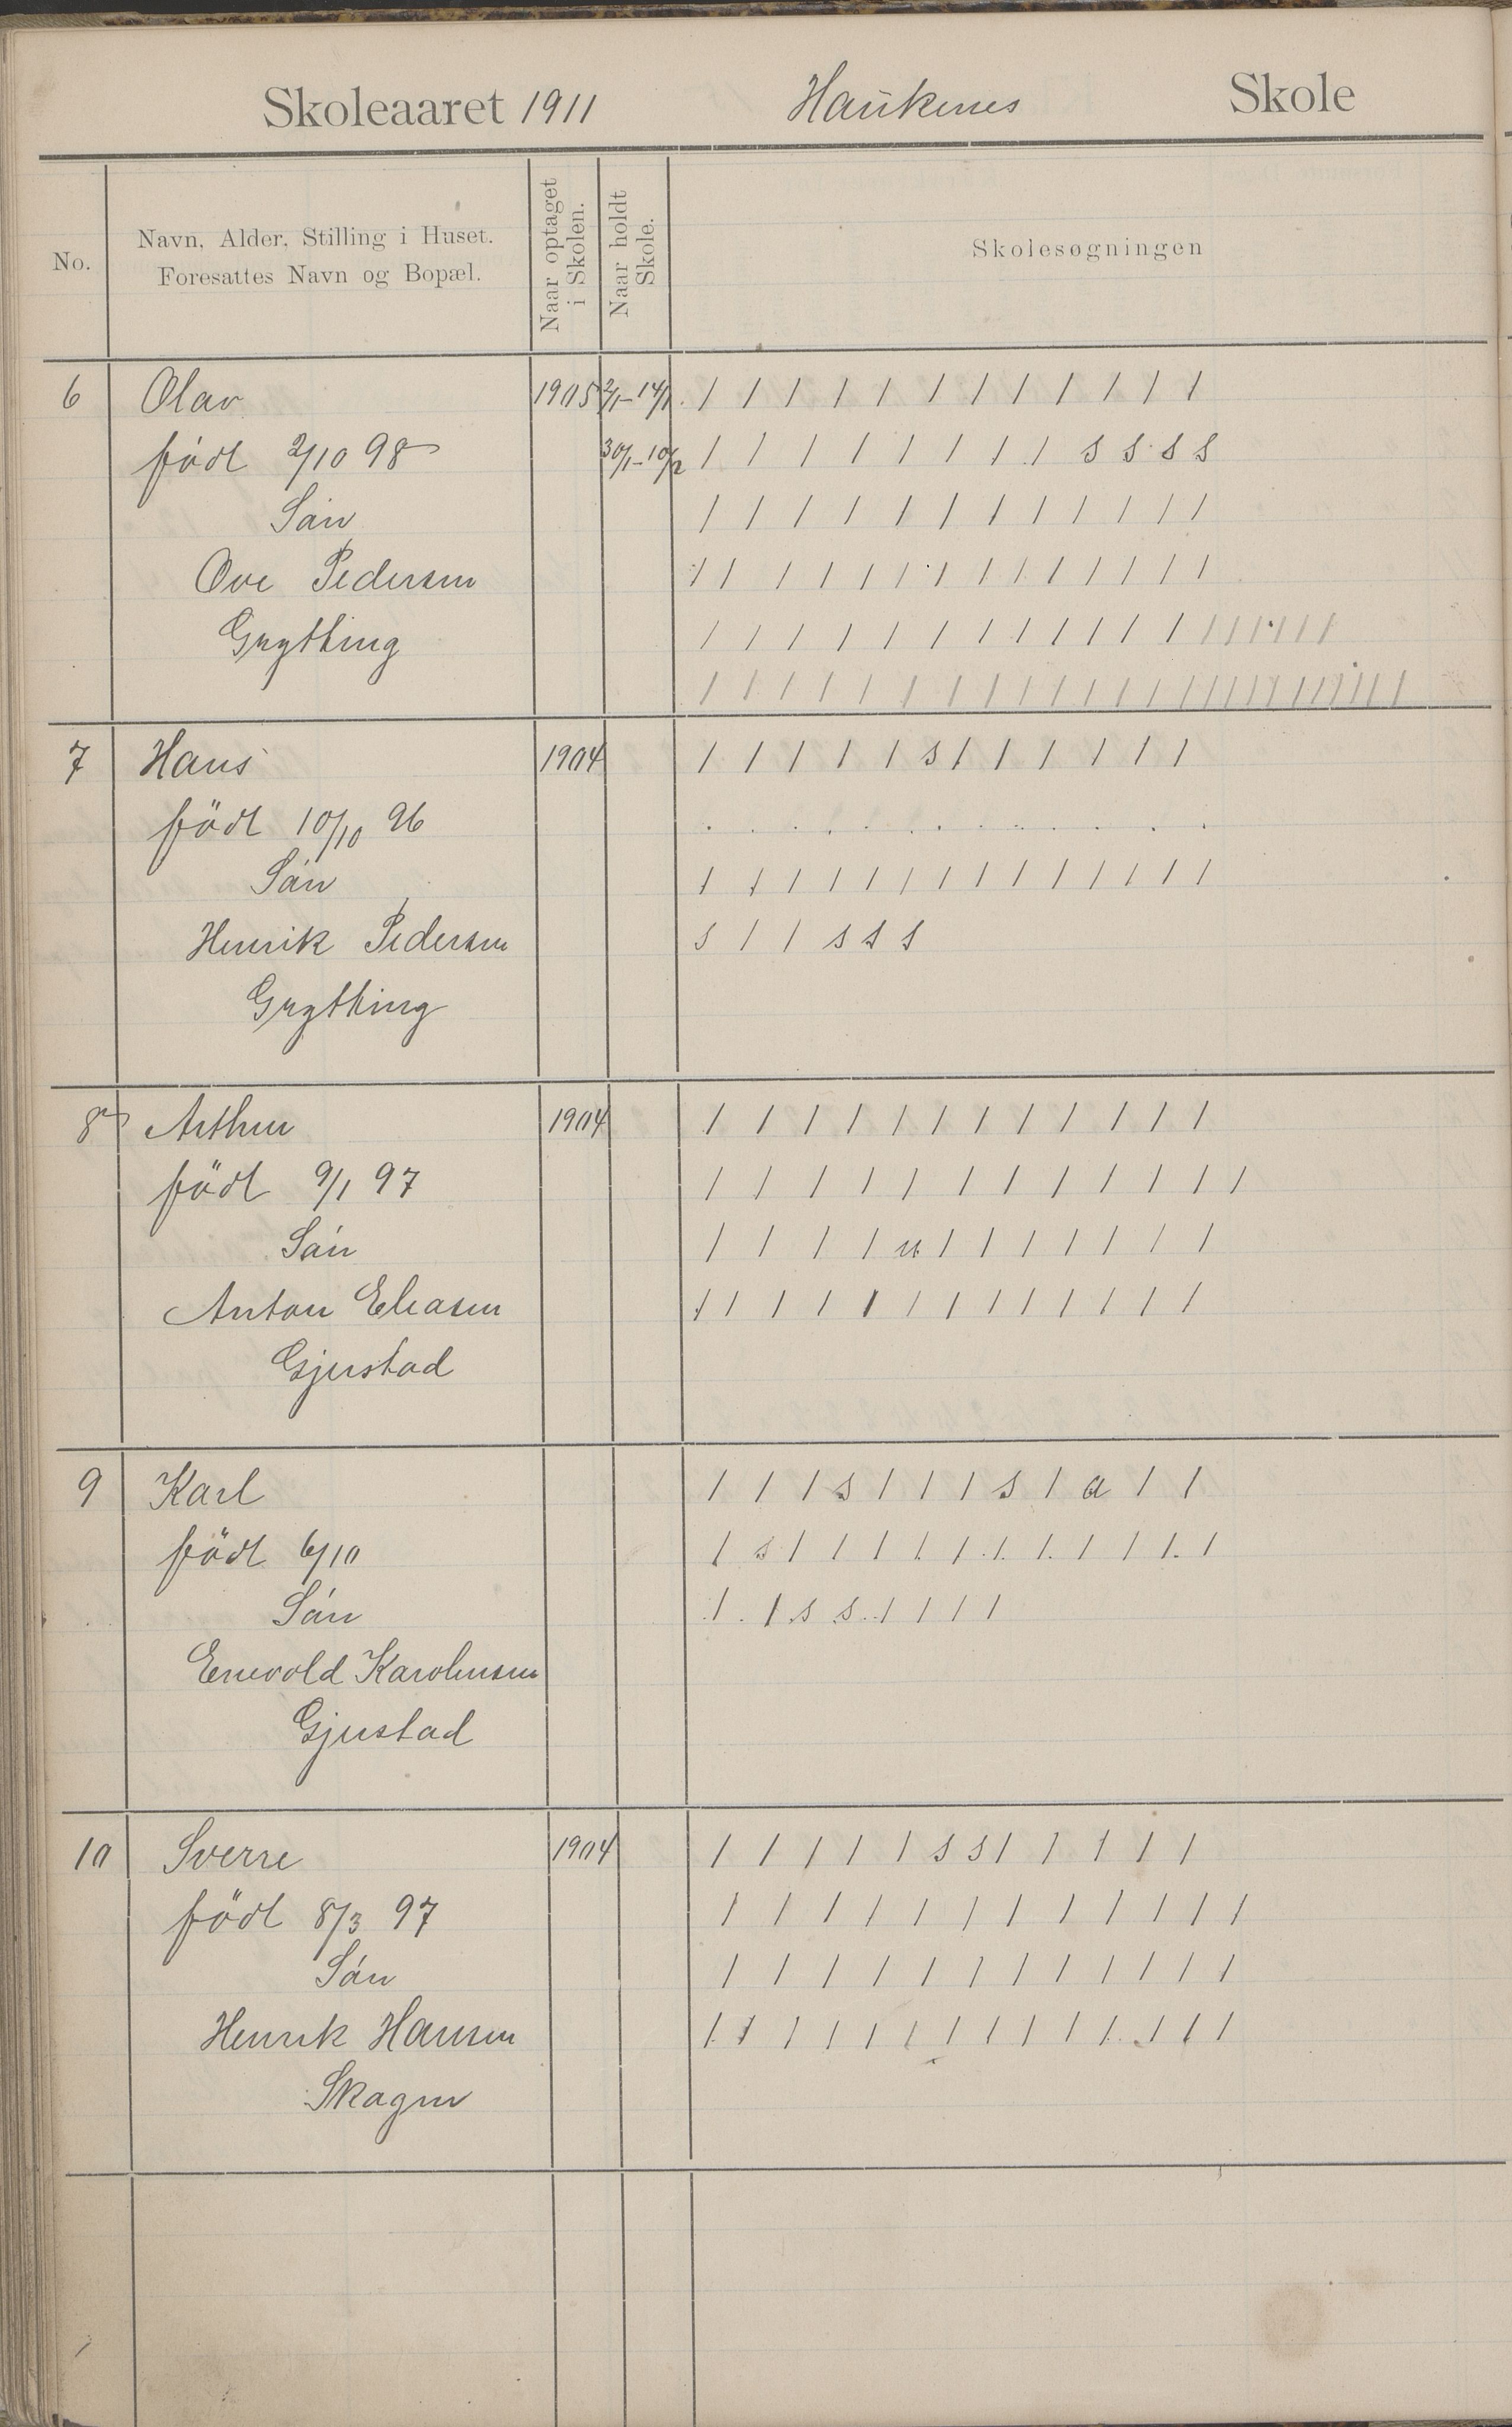 Skoleaaret 1911 Haukenes Skole
No.
Navn, Alder, Stilling i Huset.
Foresattes Navn og Bopæl.
Naar optaget
i Skolen.
Naar holdt
Skole.
Skolesøgningen
6 Olav 1905 2/1-14/1 / / / / / / / / / / / /
födt 2/10 98 30/1-10/2 / / / / / / / / s s s s
Sön / / / / / / / / / / / /
Ove Pedersen / / / / / / / / / / / / / /
Grytting / / / / / / / / / / / / / / / / / / /
/ / / / / / / / / / / / / / / / / / / / / / / / / / /
7 Hans 1904 / / / / / s / / / / / /
födt 10/10 96 . . . . . . . . . . . . .
Sön / / / / / / / / / / / / / /
Henrik Pedersen s / / s s s
Grytting
8 Arthur 1904 / / / / / / / / / / / /
födt 9/1 97 / / / / / / / / / / / /
Sön / / / / u / / / / / / /
Anton Eliasen / / / / / / / / / / / / /
Gjerstad
9 Karl / / / s / / / s / a / /
födt 6/10 / s / / / / / / / / / / /
Sön / / s s / / / /
Enevold Karolinsen
Gjerstad
10 Sverre 1904 / / / / / s s / / / / /
födt 8/3 97 / / / / / / / / / / / /
Sön / / / / / / / / / / / /
Henrik Hansen / / / / / / / / / / / / / /
Skagen